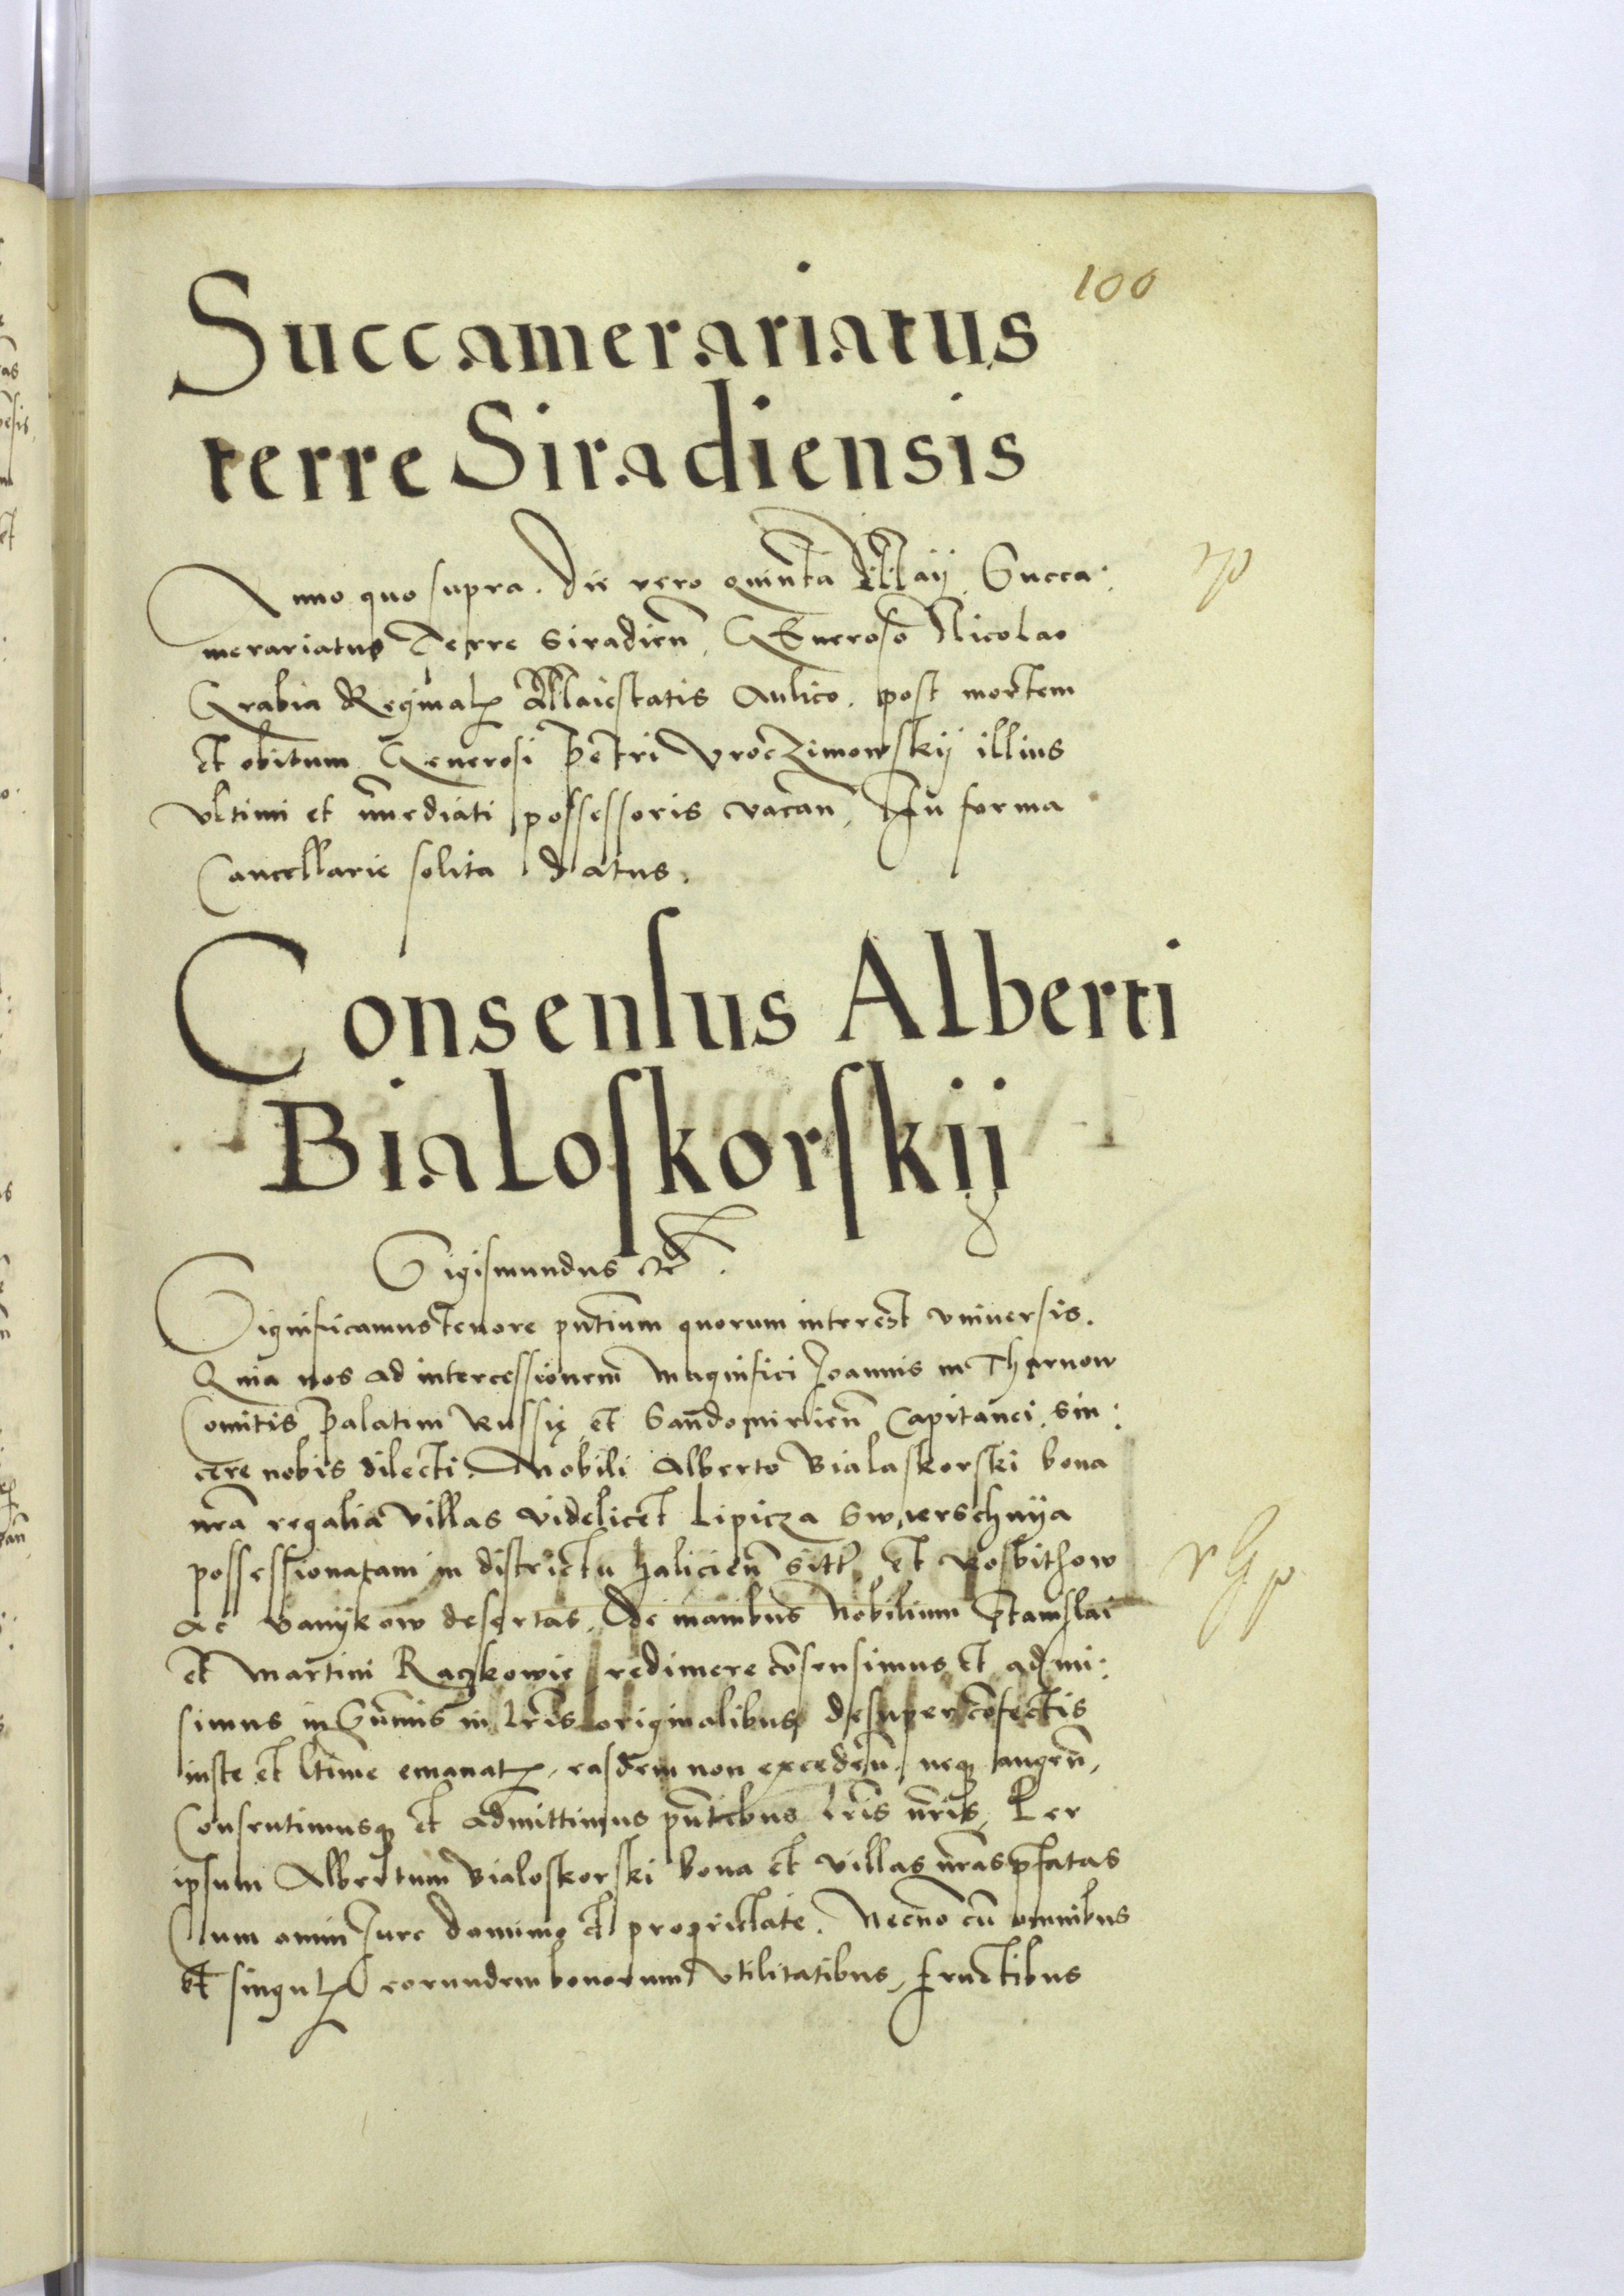 100
Succamerariatus
terre Siradiensis
Anno quo supra. Die vero quinta Maij Succa:
merariatus Terre Siradien̄, Generoso Nicolao
Grabia Reginal Maiestatis Aulico. post mortem
et obitum Generosi Petri Vroczimowskij illius
vltimi et īmediati possessoris vacan̄, In forma
Cancellarie solita datus.
Consensus Alberti
Bialoskorskij
Sigismundus etc.
Significamus tenore pn̄tium quorum interest vniuersis.
Quia nos ad intercessionem Magnifici Joannis in Tharnow
Comitis Palatini Russię et Sandomirien̄ Capitanei, sin:
cere nobis dilecti. Nobili Alberto Bialaskorski bona
nr̄a regalia villas videlicet Lipicza Swierschnija
possessionatam in districtu Halicien̄ sitt et Rosbithow
ac Banijkow desertas, De manibus Nobilium Stanislai
et Martini Raczkowie redimere cōsensimus et admi:
simus in Sum̄is in lr̄is originalibus desuper cōfectis
iuste et ltīme emanat, easdem non exceden̄, neq augen̄,
Consentimusq et admittimus pn̄tibus lr̄is nr̄is, Per
ipsum Albertum Bialoskorski bona et villas nr̄as p̄fatas
Cum omni Jure dominio et proprietate. Necno cū omnibus
et singul eorundem bonorum vtilitatibus, fructibus